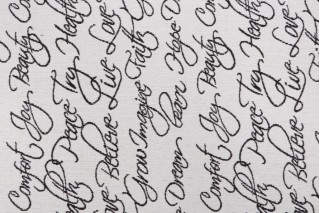 Comfort Joy Beauty Co
Healthy Peace Try Healthy
Love Believe Live Love
Grow Imagine Faith
Dream Learn Hope D
Comfort Joy Beauty Co
Healthy Peace Try Healthy
Love Believe Live Love